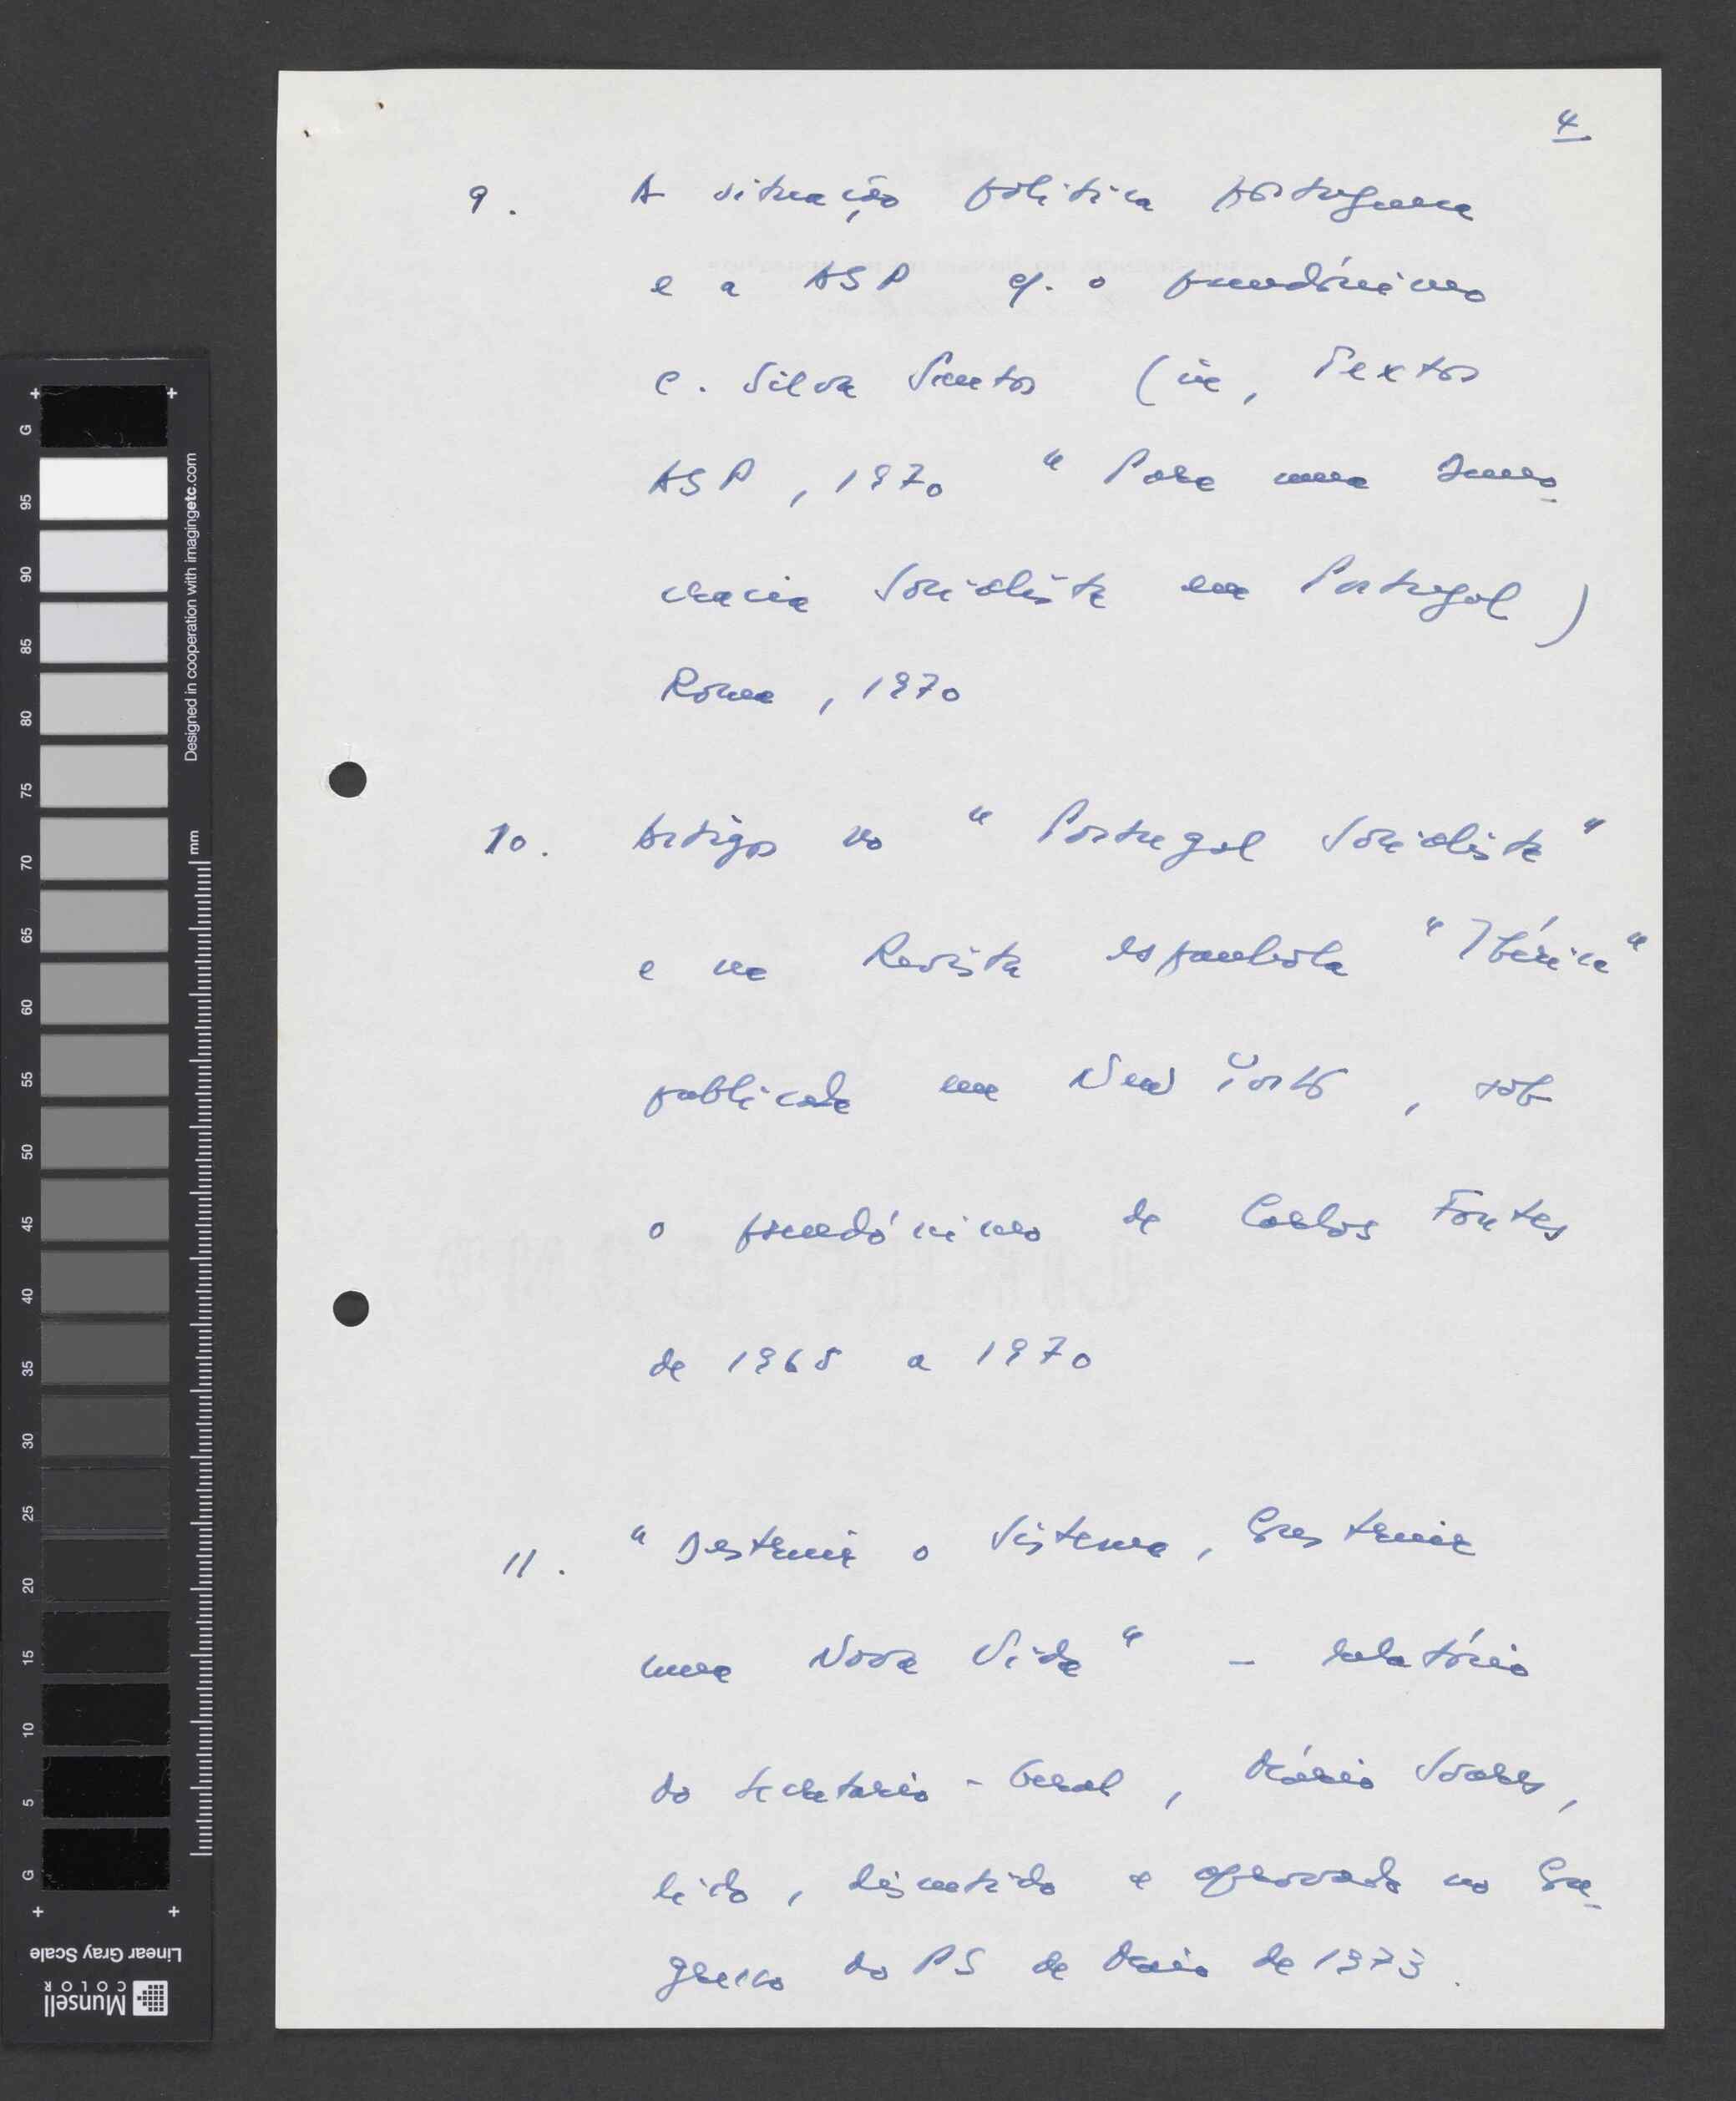 4
9. A situação política portuguesa
e a ASP c/. o pseudónimo
C. Silva Santos (in, Textos
ASP, 1970 " Para uma Demo-
cracia Socialista em Portugal)
Roma, 1970
10. Artigos no "Portugal Socialista"
e na Revista espanhola "Ibérica"
publicada em New York, sob
o pseudónimo de Carlos Fontes
de 1968 a 1970
11. "Destruir o Sistema, Construir
uma Nova Vida" - relatório
do Secretário-Geral, Mário Soares,
lido, discutido e aprovado no Con-
gresso do PS de Maio de 1973.
G
95
90
85
80
75
70
65
60
55
50
45
40
35
30
25
20
15
10
5
G
Designed in cooperation with imagingetc.com
mm
Linear Gray Scale
Munsell
COLOR